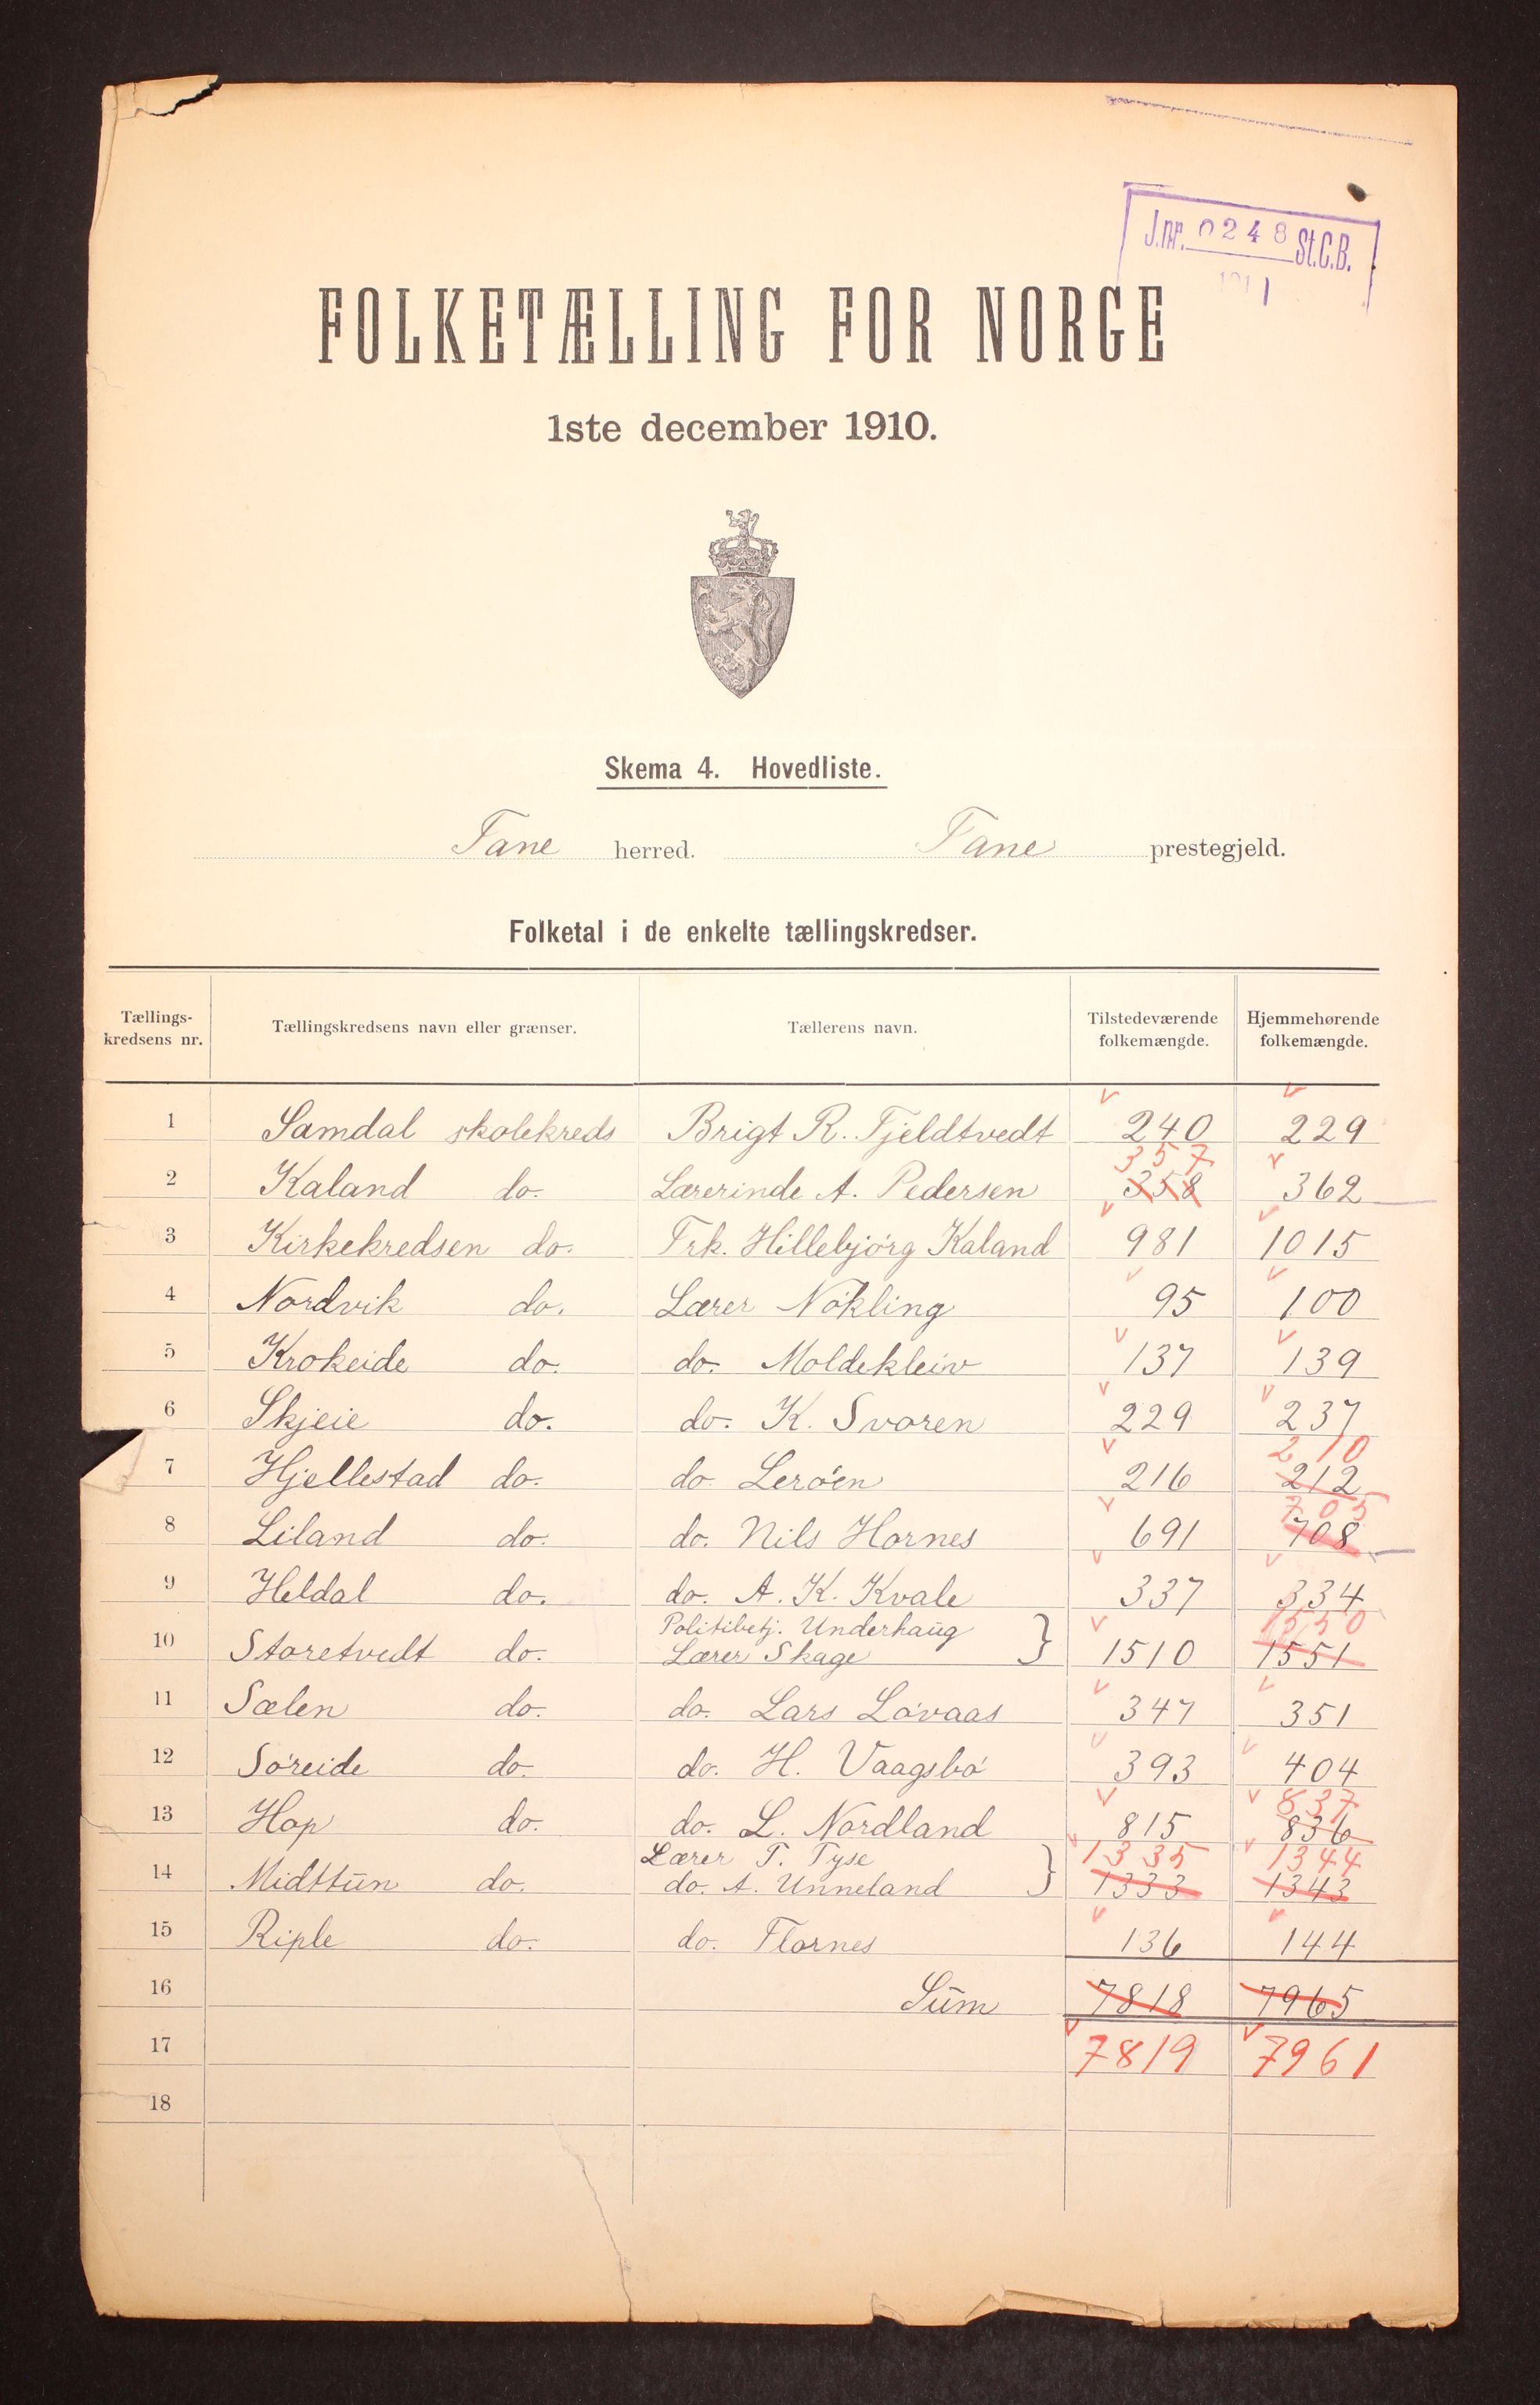 J.nr. 0248 St.C.B.
FOLKETÆLLING FOR NORGE
1ste december 1910.
Skema 4. Hovedliste.
Fane herred. Fane prestegjeld.
Folketal i de enkelte tællingskredser.
Tællings-kredsens nr. Tællingskredsens navn eller grænser. Tællerens navn. Tilstedeværende folkemængde. Hjemmehørende folkemængde.
1 Samdal skolekreds Brigt R. Fjeldtvedt 240 229
357
2 Kaland do. Lærerinde A. Pedersen 358 362
3 Kirkekredsen do. Frk. Hillebjörg Kaland 981 1015
4 Nordvik do. Lærer Nökling 95 100
5 Krokeide do. do. Moldekleiv 137 139
6 Skjeie do. do. K. Svoren 229 237
210
7 Hjellestad do. do Leröen 216 212
705
8 Liland do. do. Nils Hornes 691 708
9 Heldal do. do. A. K. Kvale 337 334
Politibetj. Underhaug 1550
10 Storetvedt do. Lærer Skage 1510 1551
11 Sælen do. do. Lars Lövaas 347 351
12 Söreide do. do. H. Vaagsbö 393 404
837
13 Hop do. do. L. Nordland 815 836
Lærer T. Tyse 1335 1344
14 Midttun do. do. A. Unneland 1333 1343
15 Riple do. do. Flornes 136 144
16 Sum 7818 7965
17 7819 7961
18